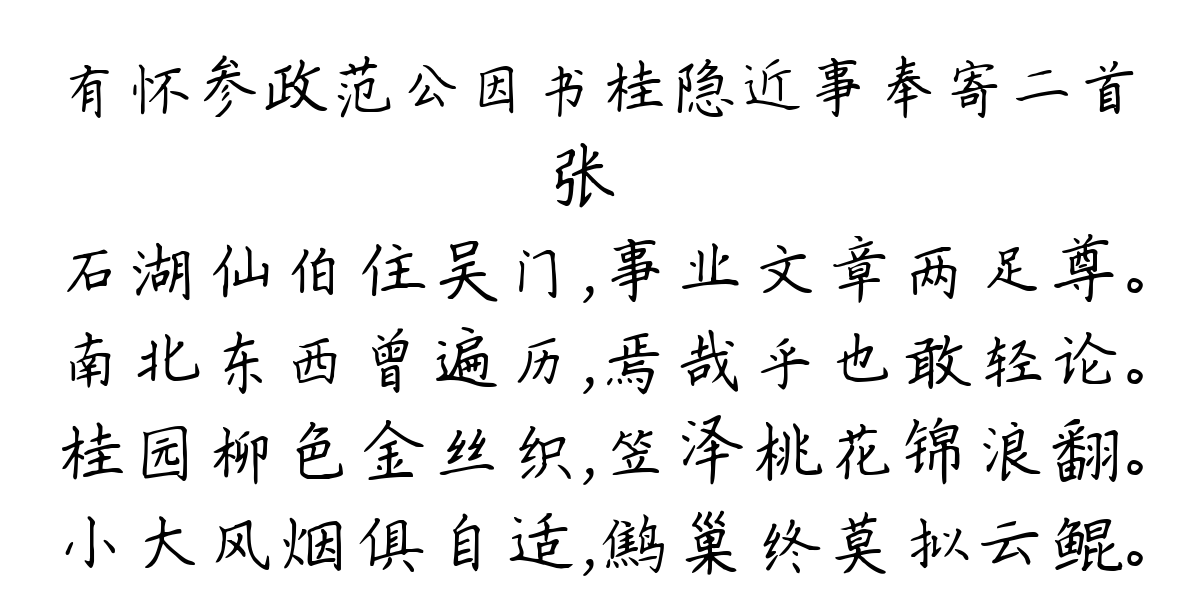 有怀参政范公因书桂隐近事奉寄二首
张
石湖仙伯住吴门,事业文章两足尊。
南北东西曾遍历,焉哉乎也敢轻论。
桂园柳色金丝织,笠泽桃花锦浪翻。
小大风烟俱自适,鹪巢终莫拟云鲲。